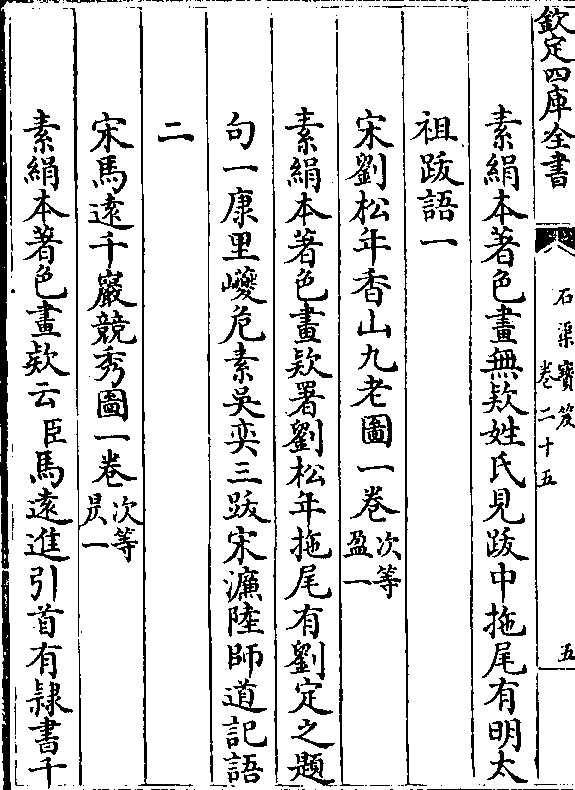 欽定四庫全書
石渠寶笈
卷二十五
五
素絹本著色畫無欵姓氏見跋中拖尾有明太
祖跋語一
宋劉松年香山九老圖一卷次等
盈一
素絹本著色畫欵署劉松年拖尾有劉定之題
句一康里巙危素吳奕三跋宋濂陸師道記語
二
宋馬遠千巖競秀圖一卷次等
昃一
素絹本著色畫欵云臣馬遠進引首有隸書千